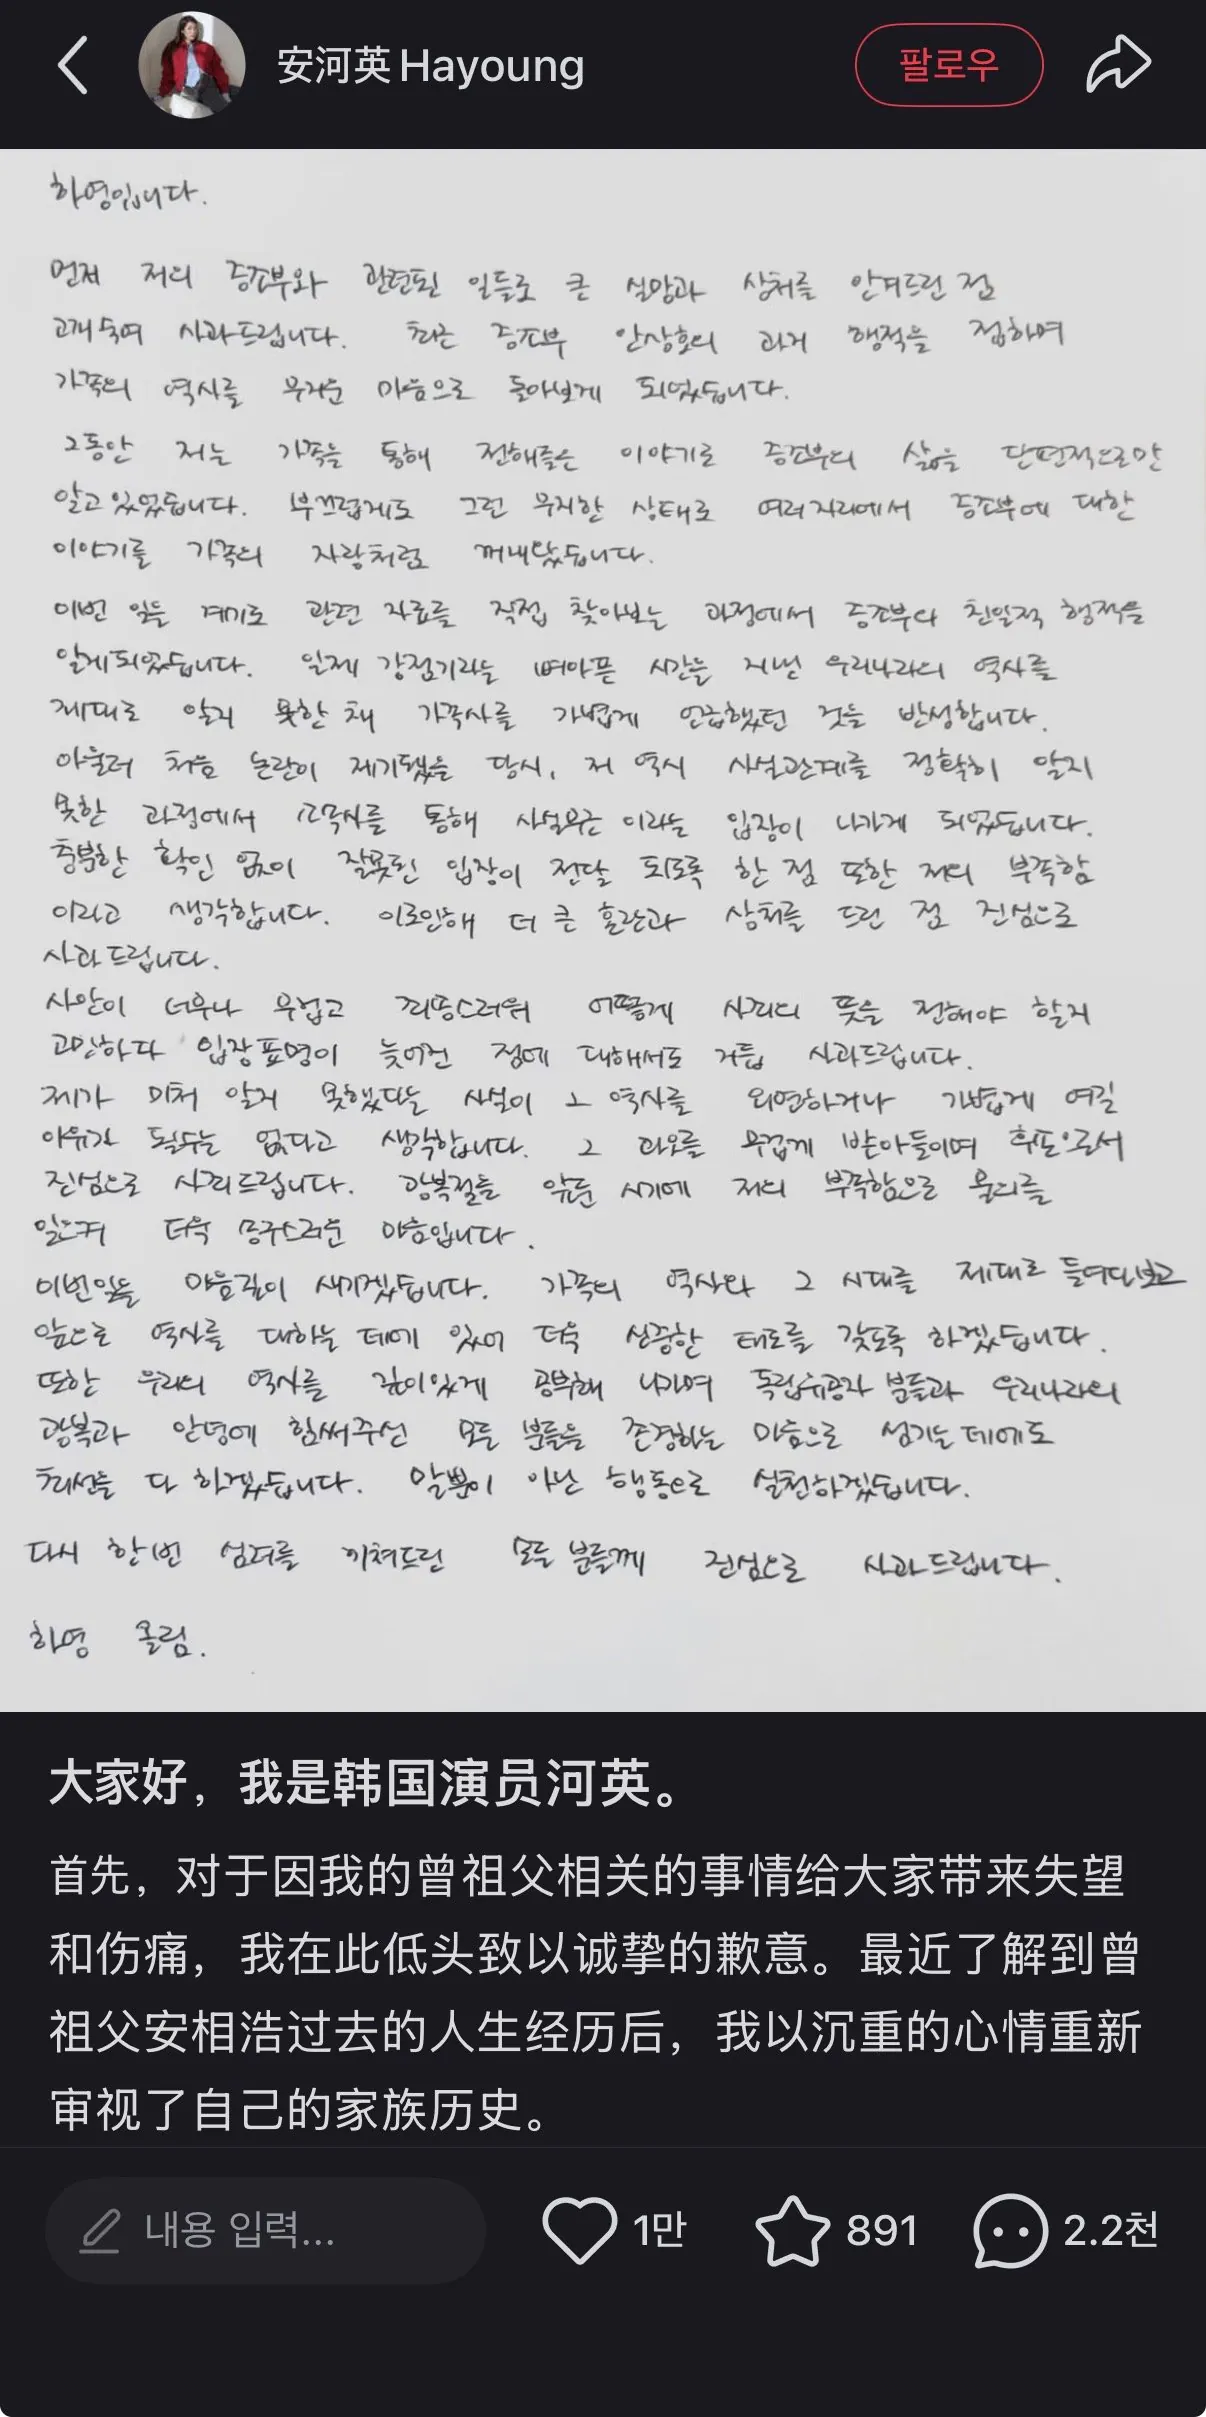 安河英Hayoung
팔로우
하영입니다.
먼저 저의 증조부와 관련된 일들로 큰 실망과 상처를 안겨드린 점
고개숙여 사과드립니다. 최근 증조부 안상호의 과거 행적을 접하며
가족의 역사를 무거운 마음으로 돌아보게 되었습니다.
그동안 저는 가족을 통해 전해들은 이야기로 증조부의 삶을 단편적으로만
알고있었습니다. 부끄럽게도 그런 무지한 상태로 여러자리에서 증조부에 대한
이야기를 가족의 자랑처럼 꺼내왔습니다.
이번 일을 계기로 관련 자료를 직접 찾아보는 과정에서 증조부의 친일적 행적을
알게되었습니다. 일제 강점기라는 뼈아픈 시간을 지낸 우리나라의 역사를
제대로 알지 못한 채 가족사를 가볍게 언급했던 것을 반성합니다.
아울러 처음 논란이 제기됐을 당시, 저 역시 사실관계를 정확히 알지
못한 과정에서 소속사를 통해 사실무근 이라는 입장이 나가게 되었습니다.
충분한 확인 없이 잘못된 입장이 전달 되도록 한 점 또한 저의 부족함
이라고 생각합니다. 이로인해 더 큰 혼란과 상처를 드린 점 진심으로
사과드립니다.
사안이 너무나 무겁고 죄송스러워 어떻게 사죄의 뜻을 전해야 할지
고민하다 입장표명이 늦어진 점에 대해서도 거듭 사과드립니다.
제가 미처 알지 못했다는 사실이 그 역사를 외면하거나 가볍게 여길
이유가 될수는 없다고 생각합니다. 그 과오를 무겁게 받아들이며 후손으로서
진심으로 사죄드립니다. 광복절을 앞둔 시기에 저의 부족함으로 물의를
일으켜 더욱 송구스러운 마음입니다.
이번일을 마음깊이 새기겠습니다. 가족의 역사와 그 시대를 제대로 들여다보고
앞으로 역사를 대하는 데에 있어 더욱 신중한 태도를 갖도록 하겠습니다.
또한 우리의 역사를 깊이있게 공부해 나가며 독립유공자 분들과 우리나라의
광복과 안녕에 힘써주신 모든 분들을 존경하는 마음으로 섬기는데에도
최선을 다 하겠습니다. 말뿐이 아닌 행동으로 실천하겠습니다.
다시 한번 심려를 끼쳐드린 모든 분들께 진심으로 사과드립니다.
하영 올림.
大家好，我是韩国演员河英。
首先，对于因我的曾祖父相关的事情给大家带来失望
和伤痛，我在此低头致以诚挚的歉意。最近了解到曾
祖父安相浩过去的人生经历后，我以沉重的心情重新
审视了自己的家族历史。
내용 입력... 1만 891 2.2천